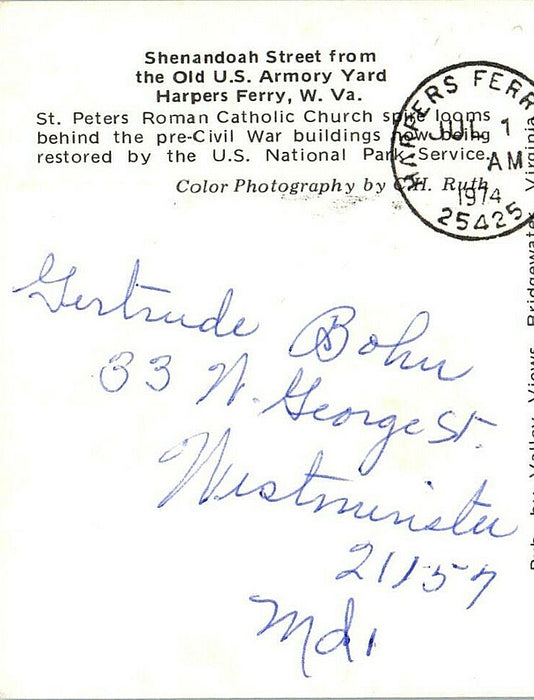 Shenandoah Street from
the Old U.S. Armory Yard
Harpers Ferry, W. Va.
St. Peters Roman Catholic Church spire looms
behind the pre-Civil War buildings now being
restored by the U.S. National Park Service.
Color Photography by C.H. Ruth
HARPERS FERR
JUL 1
AM
1974
25425
Gertrude Bohn
33 N. George St.
Westminster
21157
Md.
Pub. by Valley Views, Bridgewater, Virginia